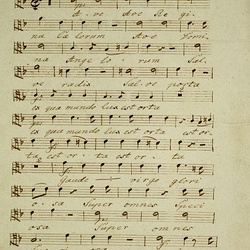 A: ve Ave Regi
na Cælorum Ave Domi
na Ange lo: rum Sal:
ve radix Sal: ve porta
ex qua mundo lux est orta
ex qua mundo lux est orta est or:
ta est or: ta est or: ta
Gaude virgo glori
o: sa Super omnes Speci
osa Super omnes